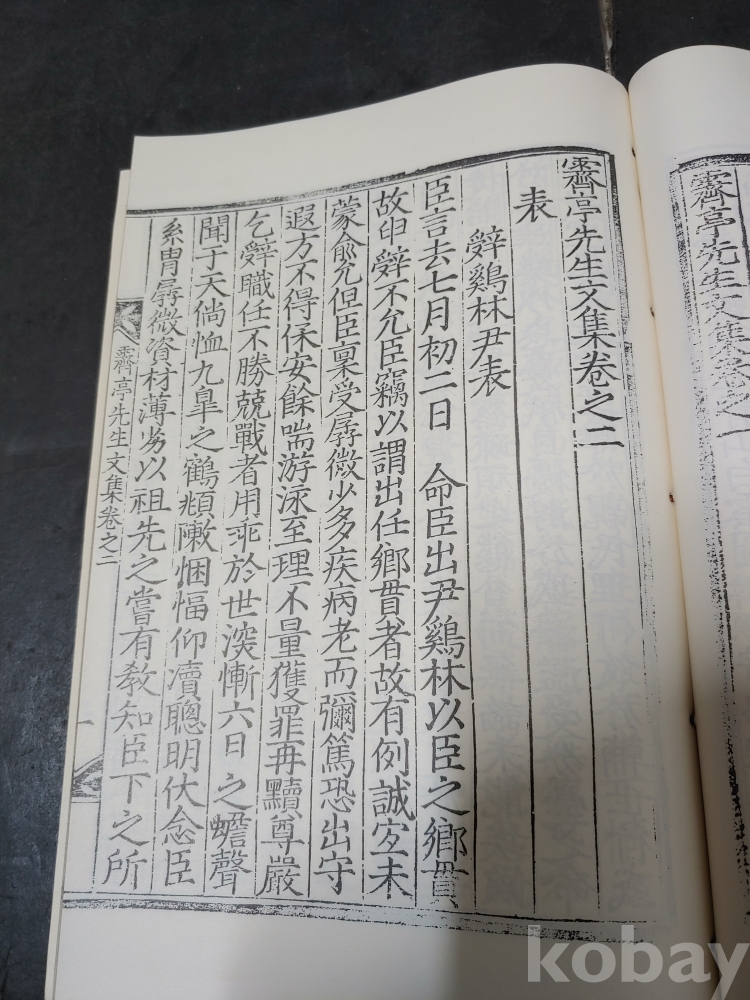 霽亭先生文集卷之二
表
辭鷄林尹表
臣言去七月初二日 命臣出尹鷄林以臣之鄉貫
故卽 辭不允臣竊以謂出任鄉貫者故有例誠宜未
蒙兪允但臣稟受孱微少多疾病老而彌篤恐出守
遐方不得保安餘喘游泳至理不量獲罪再黷尊嚴
乞辭職任不勝兢戰者用乖於世深慚六日之蟾聲
聞于天倘恤九皐之鶴頫陳悃愊仰瀆聰明伏念臣
系胄孱微資材薄劣以祖先之嘗有敎知臣下之所
霽亭先生文集卷之二
一
霽亭先生文集卷之一
kobay